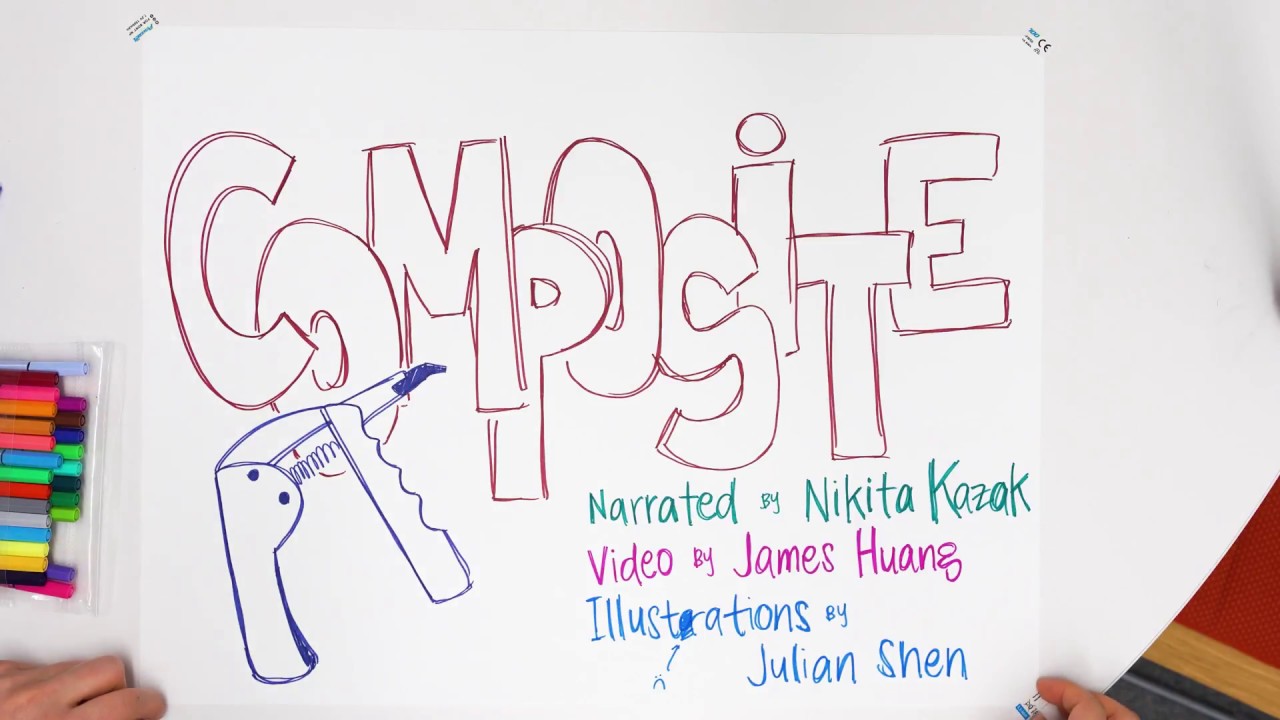 COMPOSiTE
Narrated BY Nikita Kazak
Video BY James Huang
Illustrations BY
Julian Shen